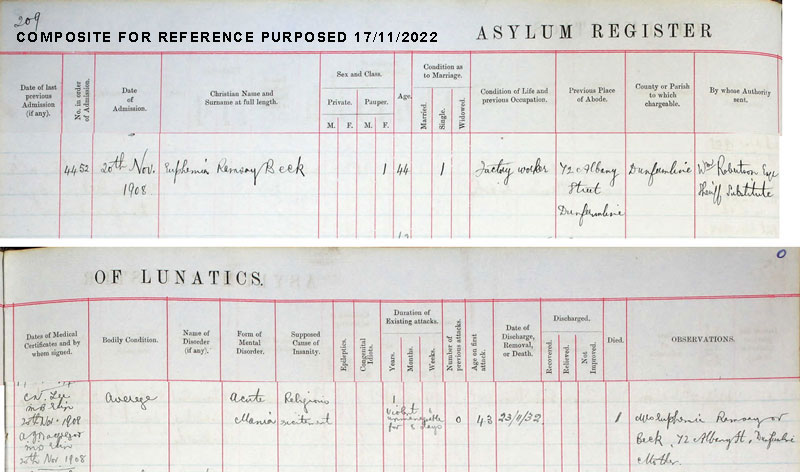 209
COMPOSITE FOR REFERENCE PURPOSED 17/11/2022
ASYLUM REGISTER
Date of last previous Admission (if any).
No. in order of Admission.
Date of Admission.
Christian Name and Surname at full length.
Sex and Class.
Private.
Pauper.
M. F. M. F.
Age.
Condition as to Marriage.
Married.
Single.
Widowed.
Condition of Life and previous Occupation.
Previous Place of Abode.
County or Parish to which chargeable.
By whose Authority sent.
4452
20th Nov. 1908
Euphemia Ramsay Beck
1
44
1
Factory worker
72 Albany Street Dunfermline
Dunfermline
Wm Robertson Esqr Sheriff Substitute
0
OF LUNATICS.
Dates of Medical Certificates and by whom signed.
Bodily Condition.
Name of Disorder (if any).
Form of Mental Disorder.
Supposed Cause of Insanity.
Epileptics.
Congenital Idiots.
Duration of Existing attacks.
Years.
Months.
Weeks.
Number of previous attacks.
Age on first attack.
Date of Discharge, Removal, or Death.
Discharged.
Recovered.
Relieved.
Not Improved.
Died.
OBSERVATIONS.
20th Nov. 1908
20th Nov 1908
Average
Acute Mania
Religious excitement
1
Violent & unmanageable for 5 days
0
43
23/11/32
1
Euphemia Ramsay or
Beck, 72 Albany St, Dunfermline
Mother.